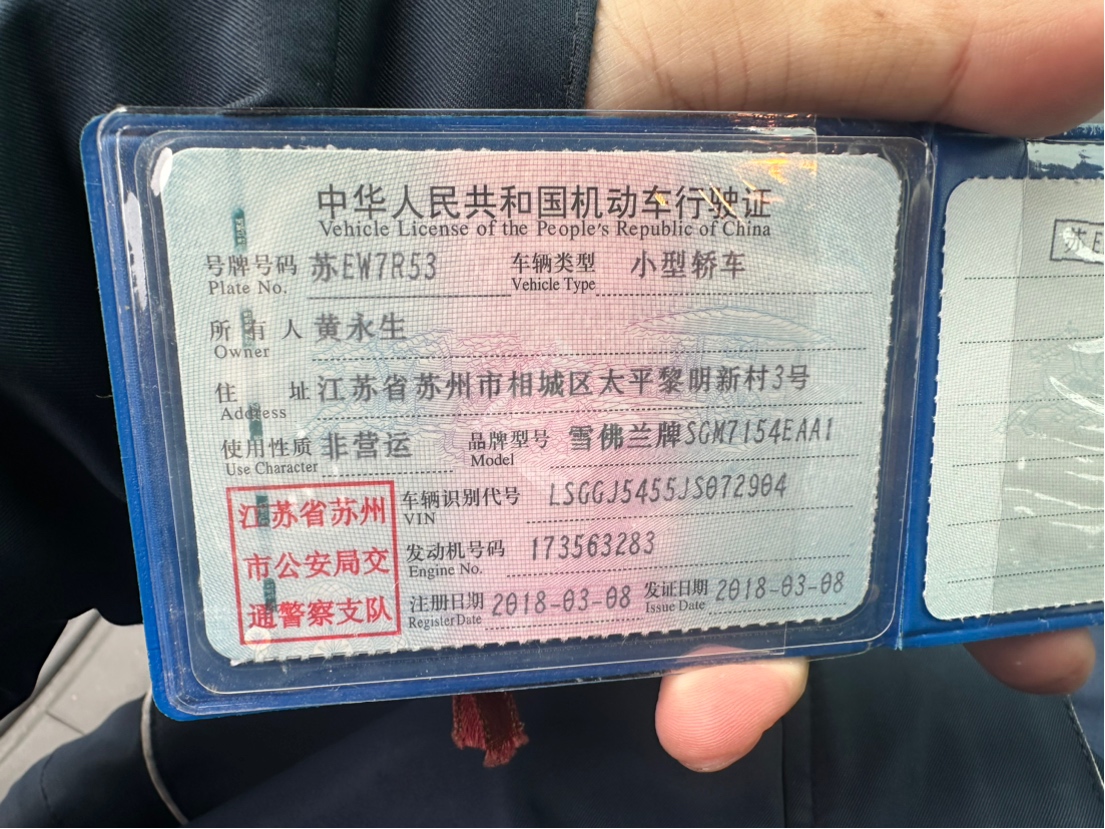 中华人民共和国机动车行驶证
Vehicle License of the People's Republic of China
号牌号码 苏EW7R53 车辆类型 小型轿车
Plate No. Vehicle Type
所有人 黄永生
Owner
住址 江苏省苏州市相城区太平黎明新村3号
Address
使用性质 非营运 品牌型号 雪佛兰牌SGM7154EAA1
Use Character Model
江苏省苏州
市公安局交
通警察支队
车辆识别代号 LSGGJ5455JS072904
VIN
发动机号码 173563283
Engine No.
注册日期 2018-03-08 发证日期 2018-03-08
Register Date Issue Date
苏E